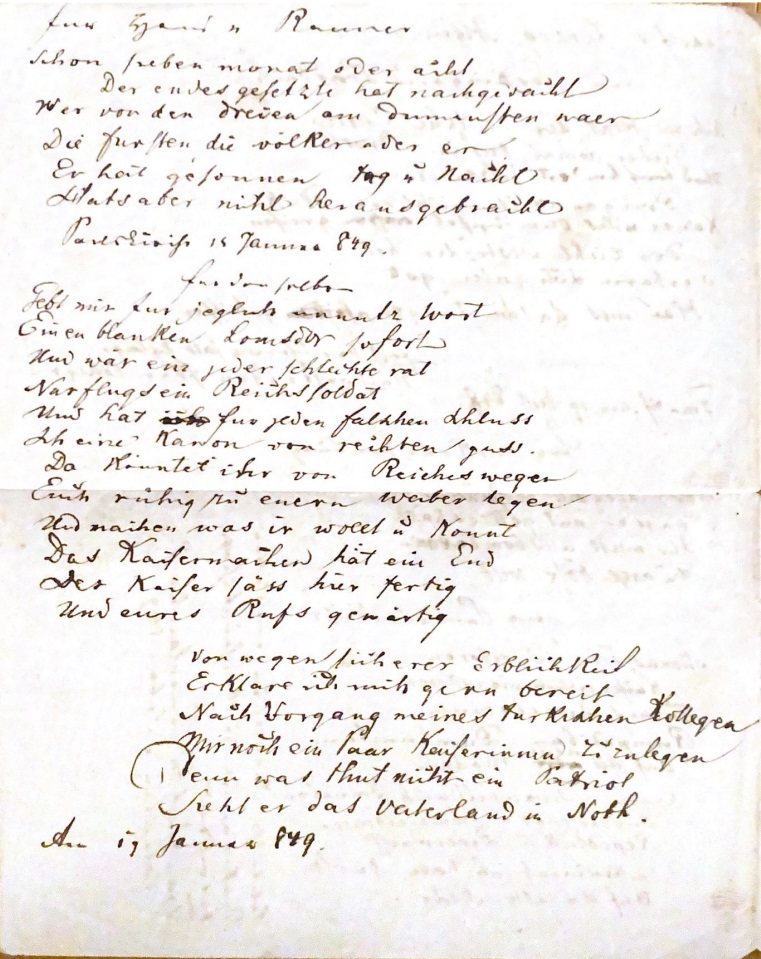 fur Hans v Raumer
Schon sieben monat oder acht
Der endes gesetzte hat nachgedacht
Wer von den dreien am dumensten waer
Die fursten die völker oder er
Er hat gesonnen tag u Nacht
Hats aber nicht herausgebracht
15 Januar 849.
fur denselben
Gebt mir fur jeglich unnutz Wort
Einen blanken Louisdor sofort
Und wär ein jeder schlechte rat
Nur flugs ein Reichssoldat
Und hat fur jeden falschen schluss
Ich eine Kanon von rechten guss.
Da könntet ihr von Reiches wegen
Euch ruhig zu euern weiber legen
Und machen was ir wollt u konnt
Das Kaisermachen hat ein End
Der Kaiser säss hier fertig
Und eures Rufs gewärtig
Von wegen sicherer Erblichkeit
Erkläre ich mich gern bereit
Nach Vorgang meines turkischen Kollegen
Mir noch ein Paar Kaiserinnen zuzulegen
Denn was thut nicht ein Patriot
Sieht er das Vaterland in Noth.
Am 19 Januar 849.